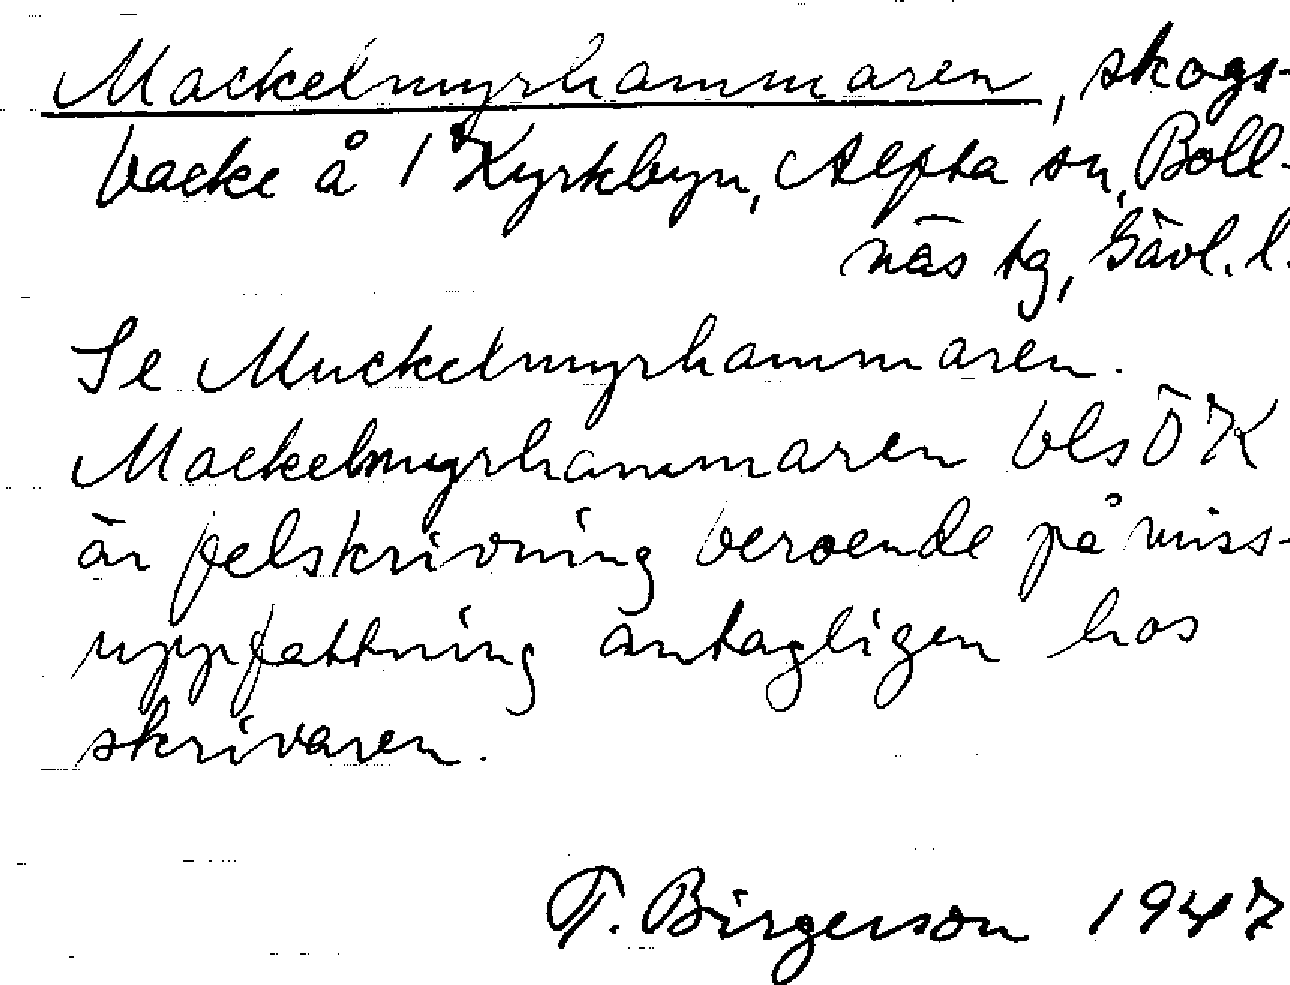 Mackelmyrhammaren, skogs-
backe å 1 Kyrkbyn, Alfta sn, Boll-
näs tg, Gävl. l.
Se Muckelmyrhammaren.
Mackelmyrhammaren bls ÖK
är felskrivning beroende på miss-
uppfattning antagligen hos
skrivaren.
F. Birgerson 1947